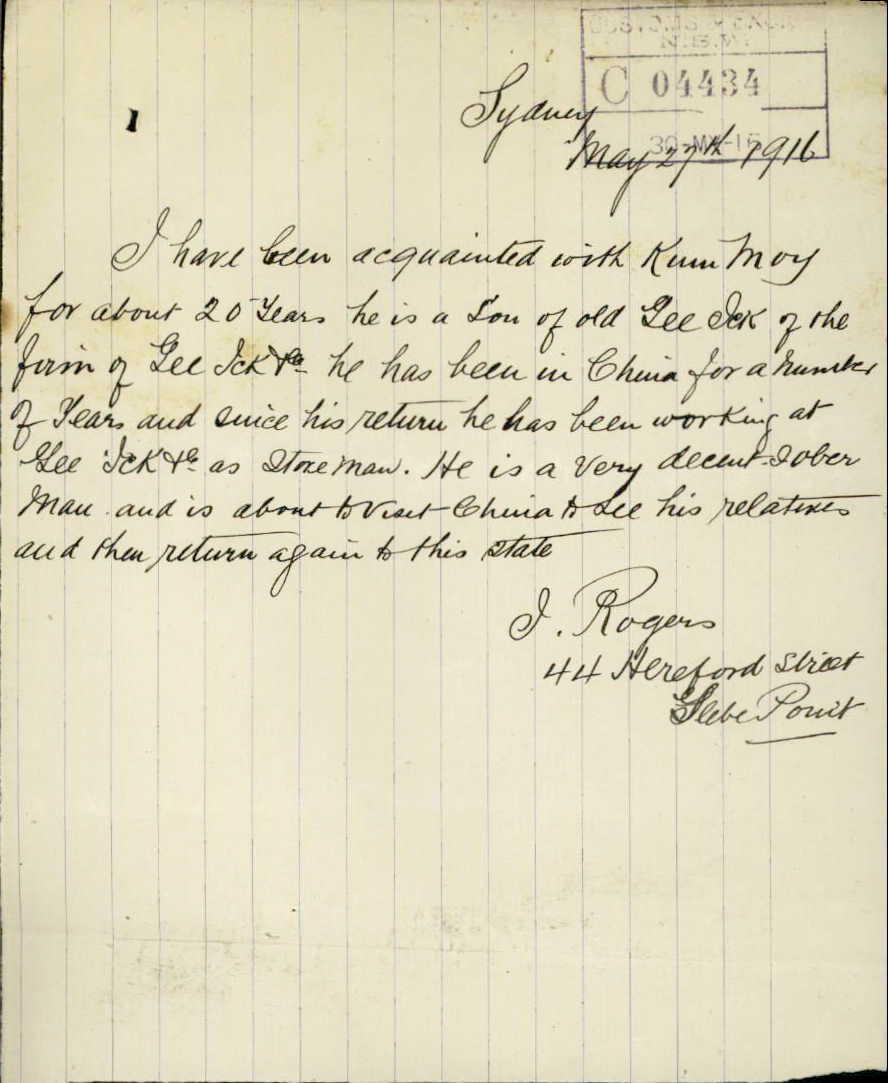 CUSTOMS
N.S.W.
C 04434
30-MY-16
1
Sydney
May 27th 1916
I have been acquainted with Kum Moy
for about 20 Years he is a Son of old Gee Ick of the
firm of Gee Ick & Co he has been in China for a number
of Years and since his return he has been working at
Gee Ick & Co as Storeman. He is a Very decent Sober
Man and is about to visit China to See his relatives
and then return again to this State
J. Rogers
44 Hereford Street
Glebe Point